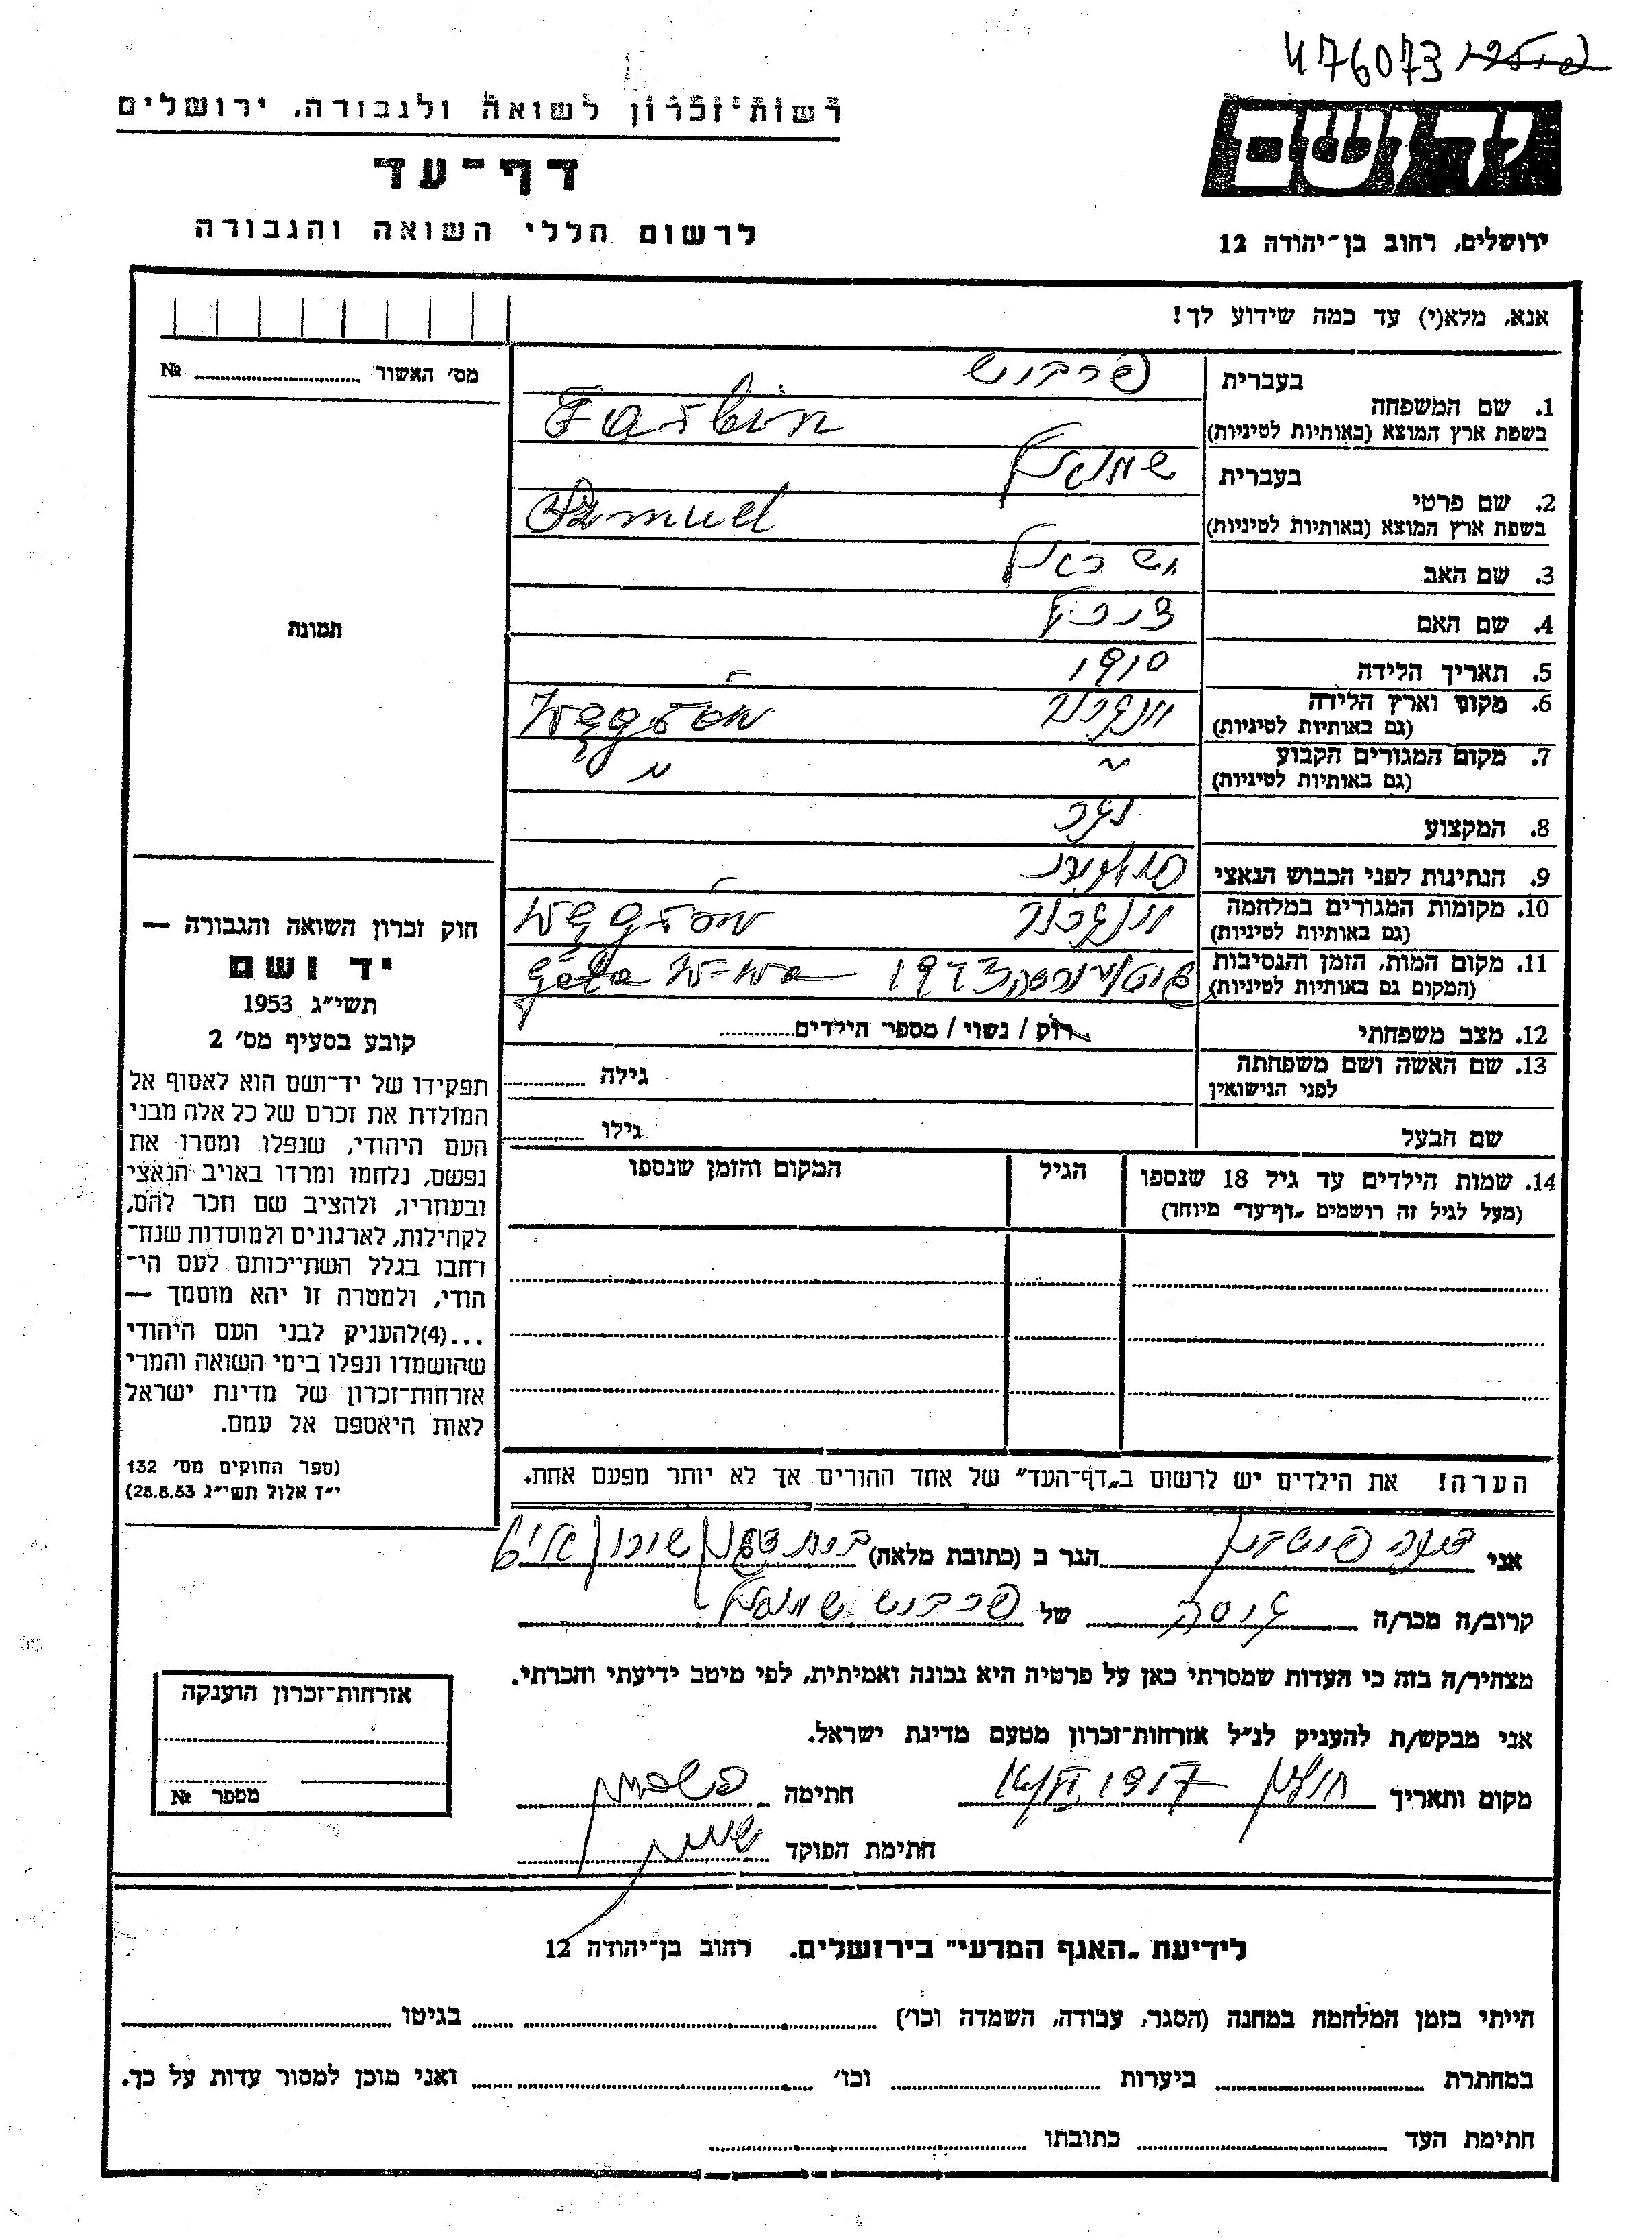 476073
רשות־זכרון לשואה ולגבורה, ירושלים
דף־עד
לרשום חללי השואה והגבורה
יד ושם
ירושלים, רחוב בן־יהודה 12
אנא, מלא(י) עד כמה שידוע לך!
מס׳ האשור № 
תמונה
1. שם המשפחה
בעברית
בשפת ארץ המוצא (באותיות לטיניות)
Farbin
2. שם פרטי
בעברית שמואל
בשפת ארץ המוצא (באותיות לטיניות) Samuel
3. שם האב ישראל
4. שם האם
5. תאריך הלידה 1910
6. מקום וארץ הלידה
(גם באותיות לטיניות) Węgrów
7. מקום המגורים הקבוע
(גם באותיות לטיניות) "
8. המקצוע נגר
9. הנתינות לפני הכבוש הנאצי פולנית
10. מקומות המגורים במלחמה
(גם באותיות לטיניות) Węgrów
11. מקום המות, הזמן והנסיבות
(המקום גם באותיות לטיניות) 1943
12. מצב משפחתי רוק / נשוי / מספר הילדים
13. שם האשה ושם משפחתה
לפני הנישואין
גילה
שם הבעל גילו
14. שמות הילדים עד גיל 18 שנספו
(מעל לגיל זה רושמים „דף־עד״ מיוחד)
הגיל
המקום והזמן שנספו
חוק זכרון השואה והגבורה —
יד ושם
תשי״ג 1953
קובע בסעיף מס׳ 2
תפקידו של יד־ושם הוא לאסוף אל
המולדת את זכרם של כל אלה מבני
העם היהודי, שנפלו ומסרו את
נפשם, נלחמו ומרדו באויב הנאצי
ובעוזריו, ולהציב שם וזכר להם,
לקהילות, לארגונים ולמוסדות שנח־
רבו בגלל השתייכותם לעם הי־
הודי, ולמטרה זו יהא מוסמך —
...(4)להעניק לבני העם היהודי
שהושמדו ונפלו בימי השואה והמרי
אזרחות־זכרון של מדינת ישראל
לאות היאספם אל עמם.
(ספר החוקים מס׳ 132
י״ז אלול תשי״ג 28.8.53)
הערה! את הילדים יש לרשום ב„דף־העד״ של אחד ההורים אך לא יותר מפעם אחת.
אני הגר ב (כתובת מלאה)
קרוב/ה מכר/ה של שמואל
מצהיר/ה בזה כי העדות שמסרתי כאן על פרטיה היא נכונה ואמיתית, לפי מיטב ידיעתי והכרתי.
אני מבקש/ת להעניק לנ״ל אזרחות־זכרון מטעם מדינת ישראל.
מקום ותאריך חולון חתימה
חתימת הפוקד
אזרחות־זכרון הוענקה
מספר №
לידיעת „האגף המדעי״ בירושלים. רחוב בן־יהודה 12
הייתי בזמן המלחמה במחנה (הסגר, עבודה, השמדה וכו׳) בגיטו
במחתרת ביערות וכו׳ ואני מוכן למסור עדות על כך.
חתימת העד כתובתו